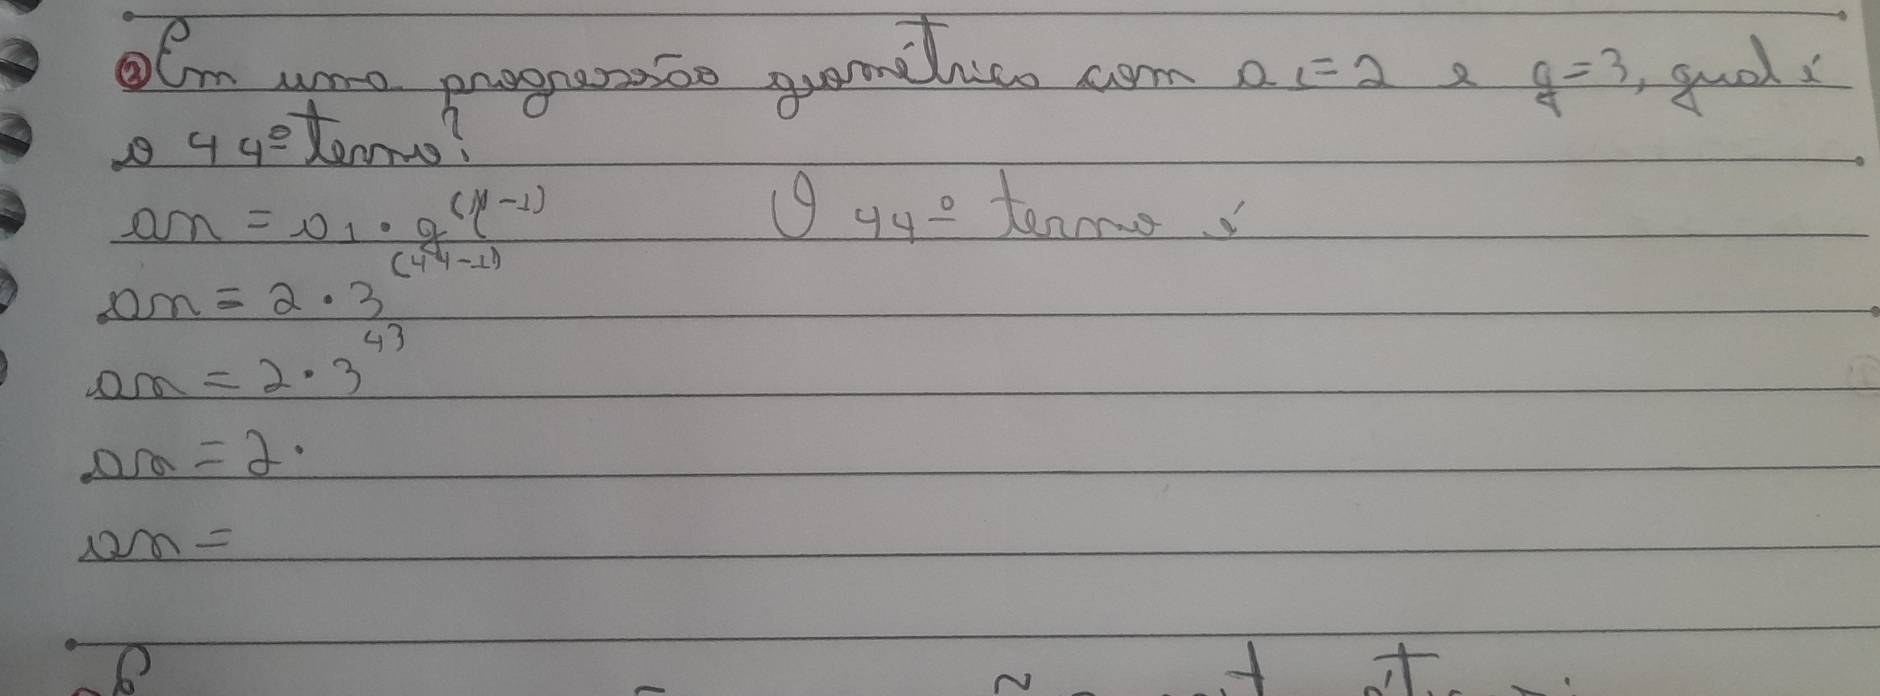 ② Em uma progressão geométrica com a1=2 e q=3, qual é
o 44º termo?
an = a1 · q^(n-1)
O 44º termo é
an = 2 · 3^(44-1)
an = 2 · 3^43
an = 2 ·
an =